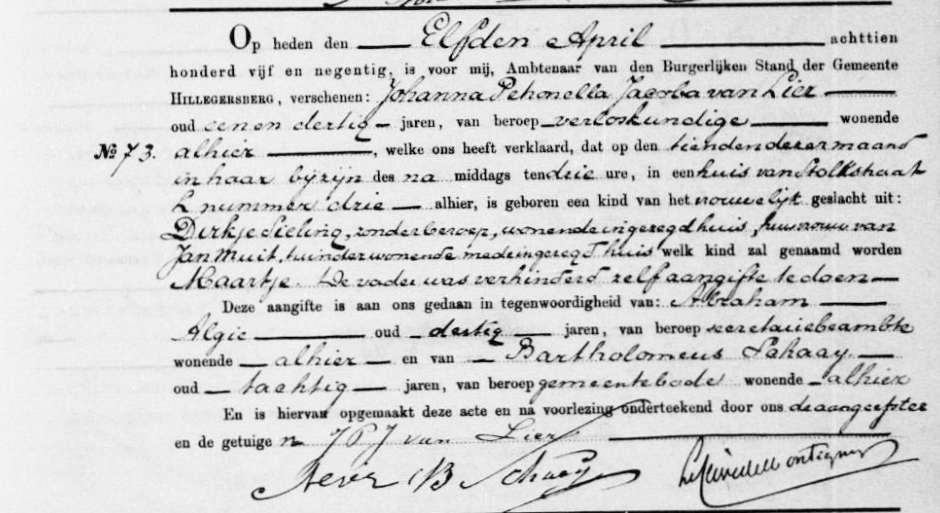 Op heden den Elfden April achttien
honderd vijf en negentig, is voor mij, Ambtenaar van den Burgerlijken Stand der Gemeente
HILLEGERSBERG, verschenen: Johanna Petronella Jacoba van Lier
oud een en dertig jaren, van beroep verloskundige wonende
No 73. alhier, welke ons heeft verklaard, dat op den tienden dezer maand
in haar bijzijn des na middags ten drie ure, in een huis van Stolkstraat
L nummer drie alhier, is geboren een kind van het vrouwelijk geslacht uit:
Dirkje Sieling, zonder beroep, wonende in gezegd huis, huisvrouw van
Jan Muit, tuinder wonende mede in gezegd huis welk kind zal genaamd worden
Maartje. De vader was verhinderd zelf aangifte te doen
Deze aangifte is aan ons gedaan in tegenwoordigheid van: Abraham
Algie oud dertig jaren, van beroep secretariebeambte
wonende alhier en van Bartholomeus Schaay
oud tachtig jaren, van beroep gemeentebode wonende alhier
En is hiervan opgemaakt deze acte en na voorlezing onderteekend door ons de aangeefster
en de getuige n J P J van Lier
B Schaay